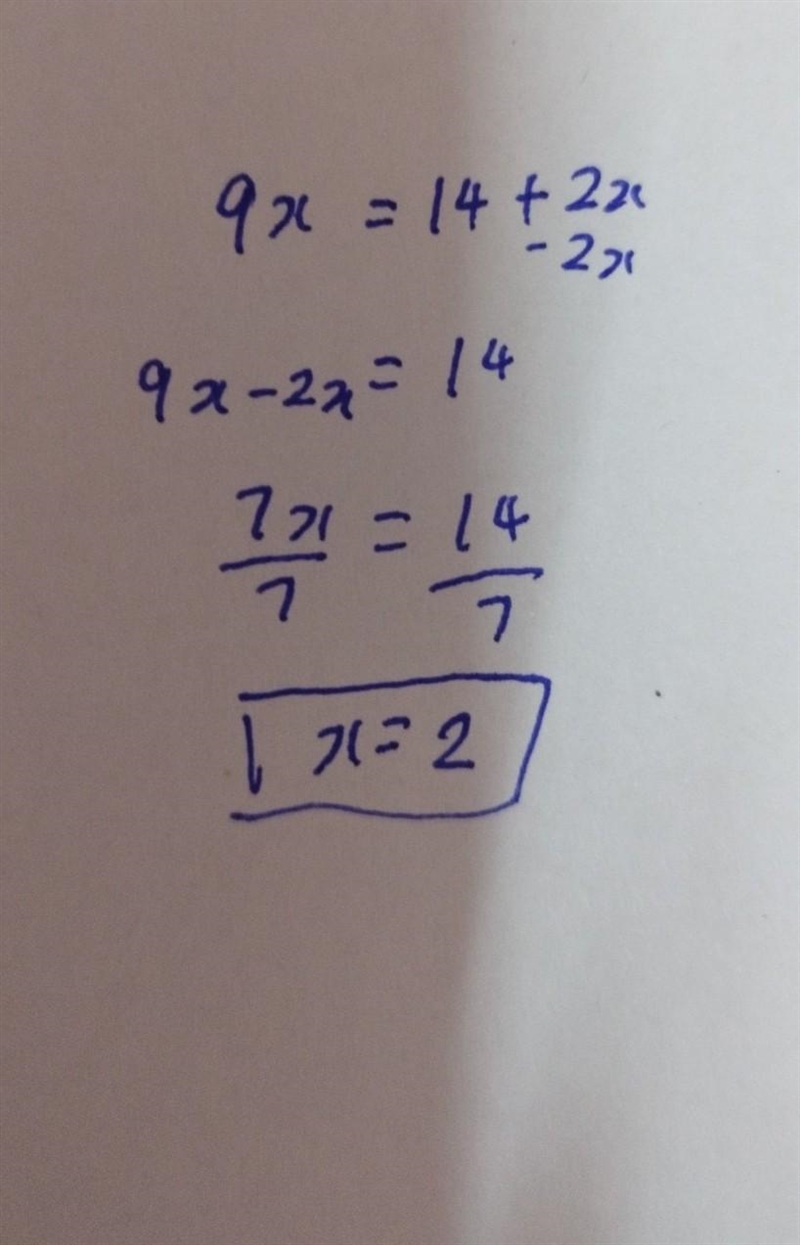 9x = 14 + 2x
- 2x
9x - 2x = 14
7x = 14
7 7
x = 2